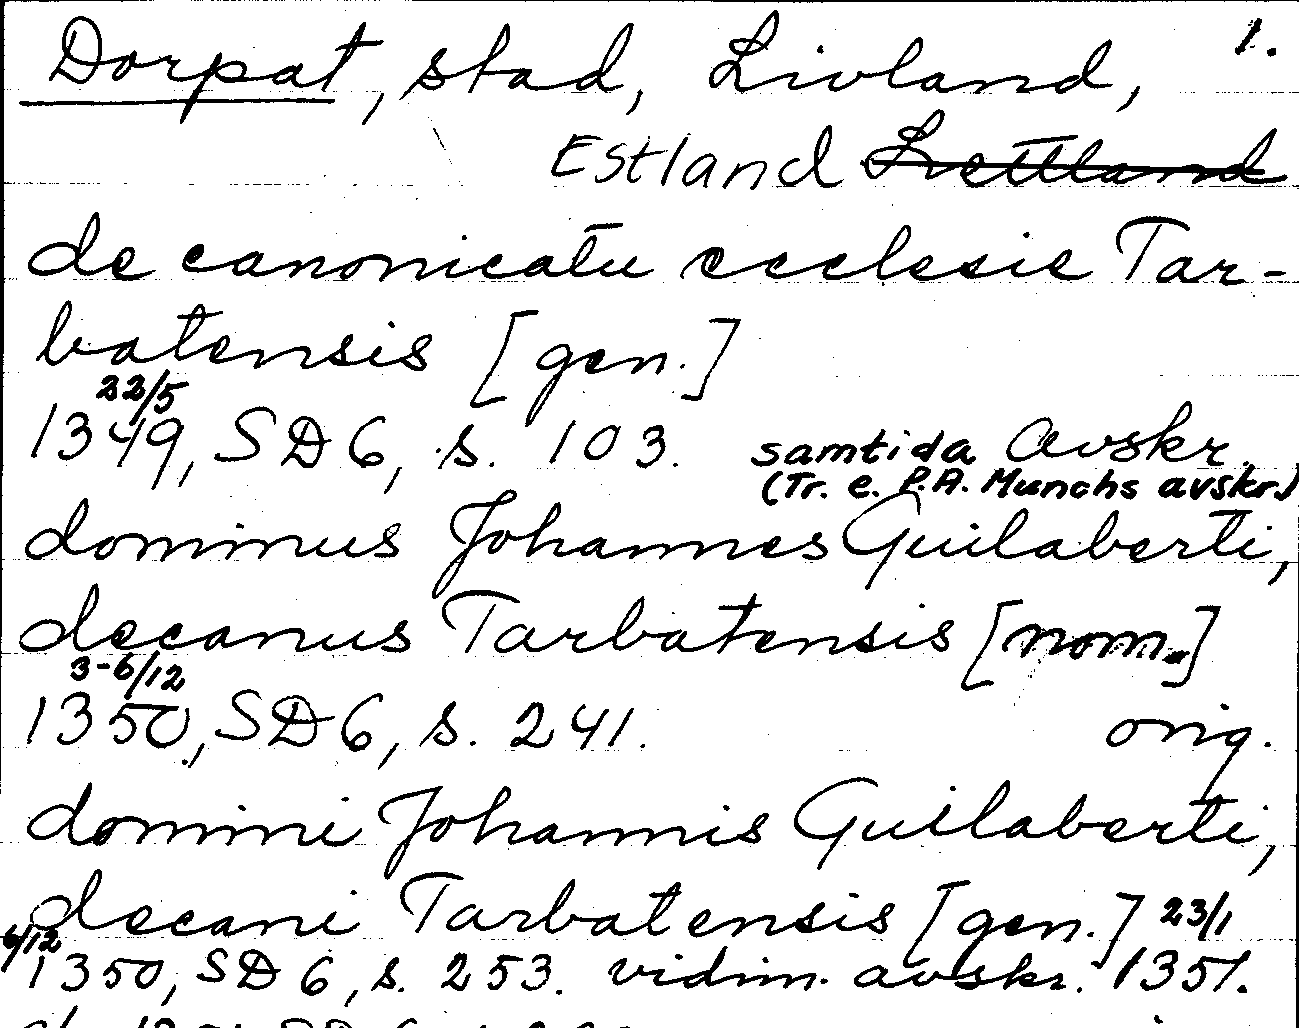 Dorpat, stad, Livland, 1.
Estland Lettland
de canonicatu ecclesie Tar-
batensis [gen.]
22/5
1349, SD 6, s. 103. samtida avskr.
(Tr. e. P.A. Munchs avskr.)
dominus Johannes Guilaberti,
decanus Tarbatensis [nom.]
3-6/12
1350, SD 6, s. 241. orig.
domini Johannis Guilaberti,
decani Tarbatensis [gen.] 23/1
6/12
1350, SD 6, s. 253. vidim. avskr. 1351.